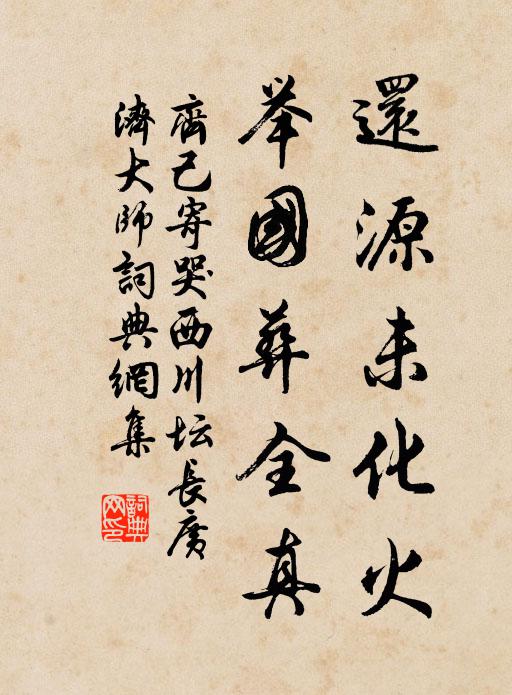 還源未化火
举國葬全真
齊己寄哭西川坛長廣
濟大师詞典網集
詞典
网印